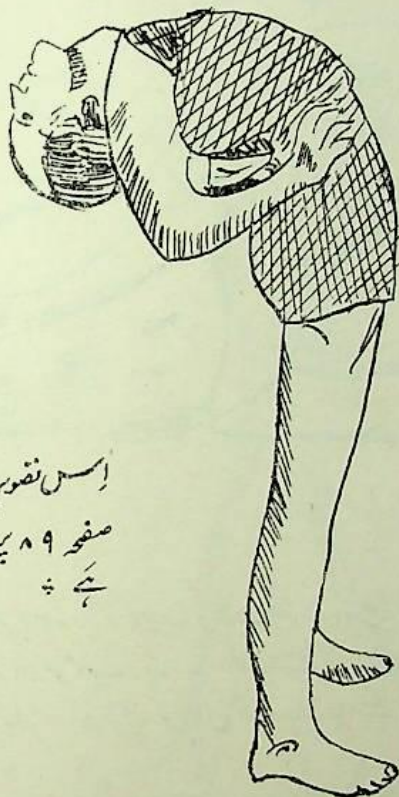 اِس تصویر
صفحہ ۸۹ پر
ہَے ۔